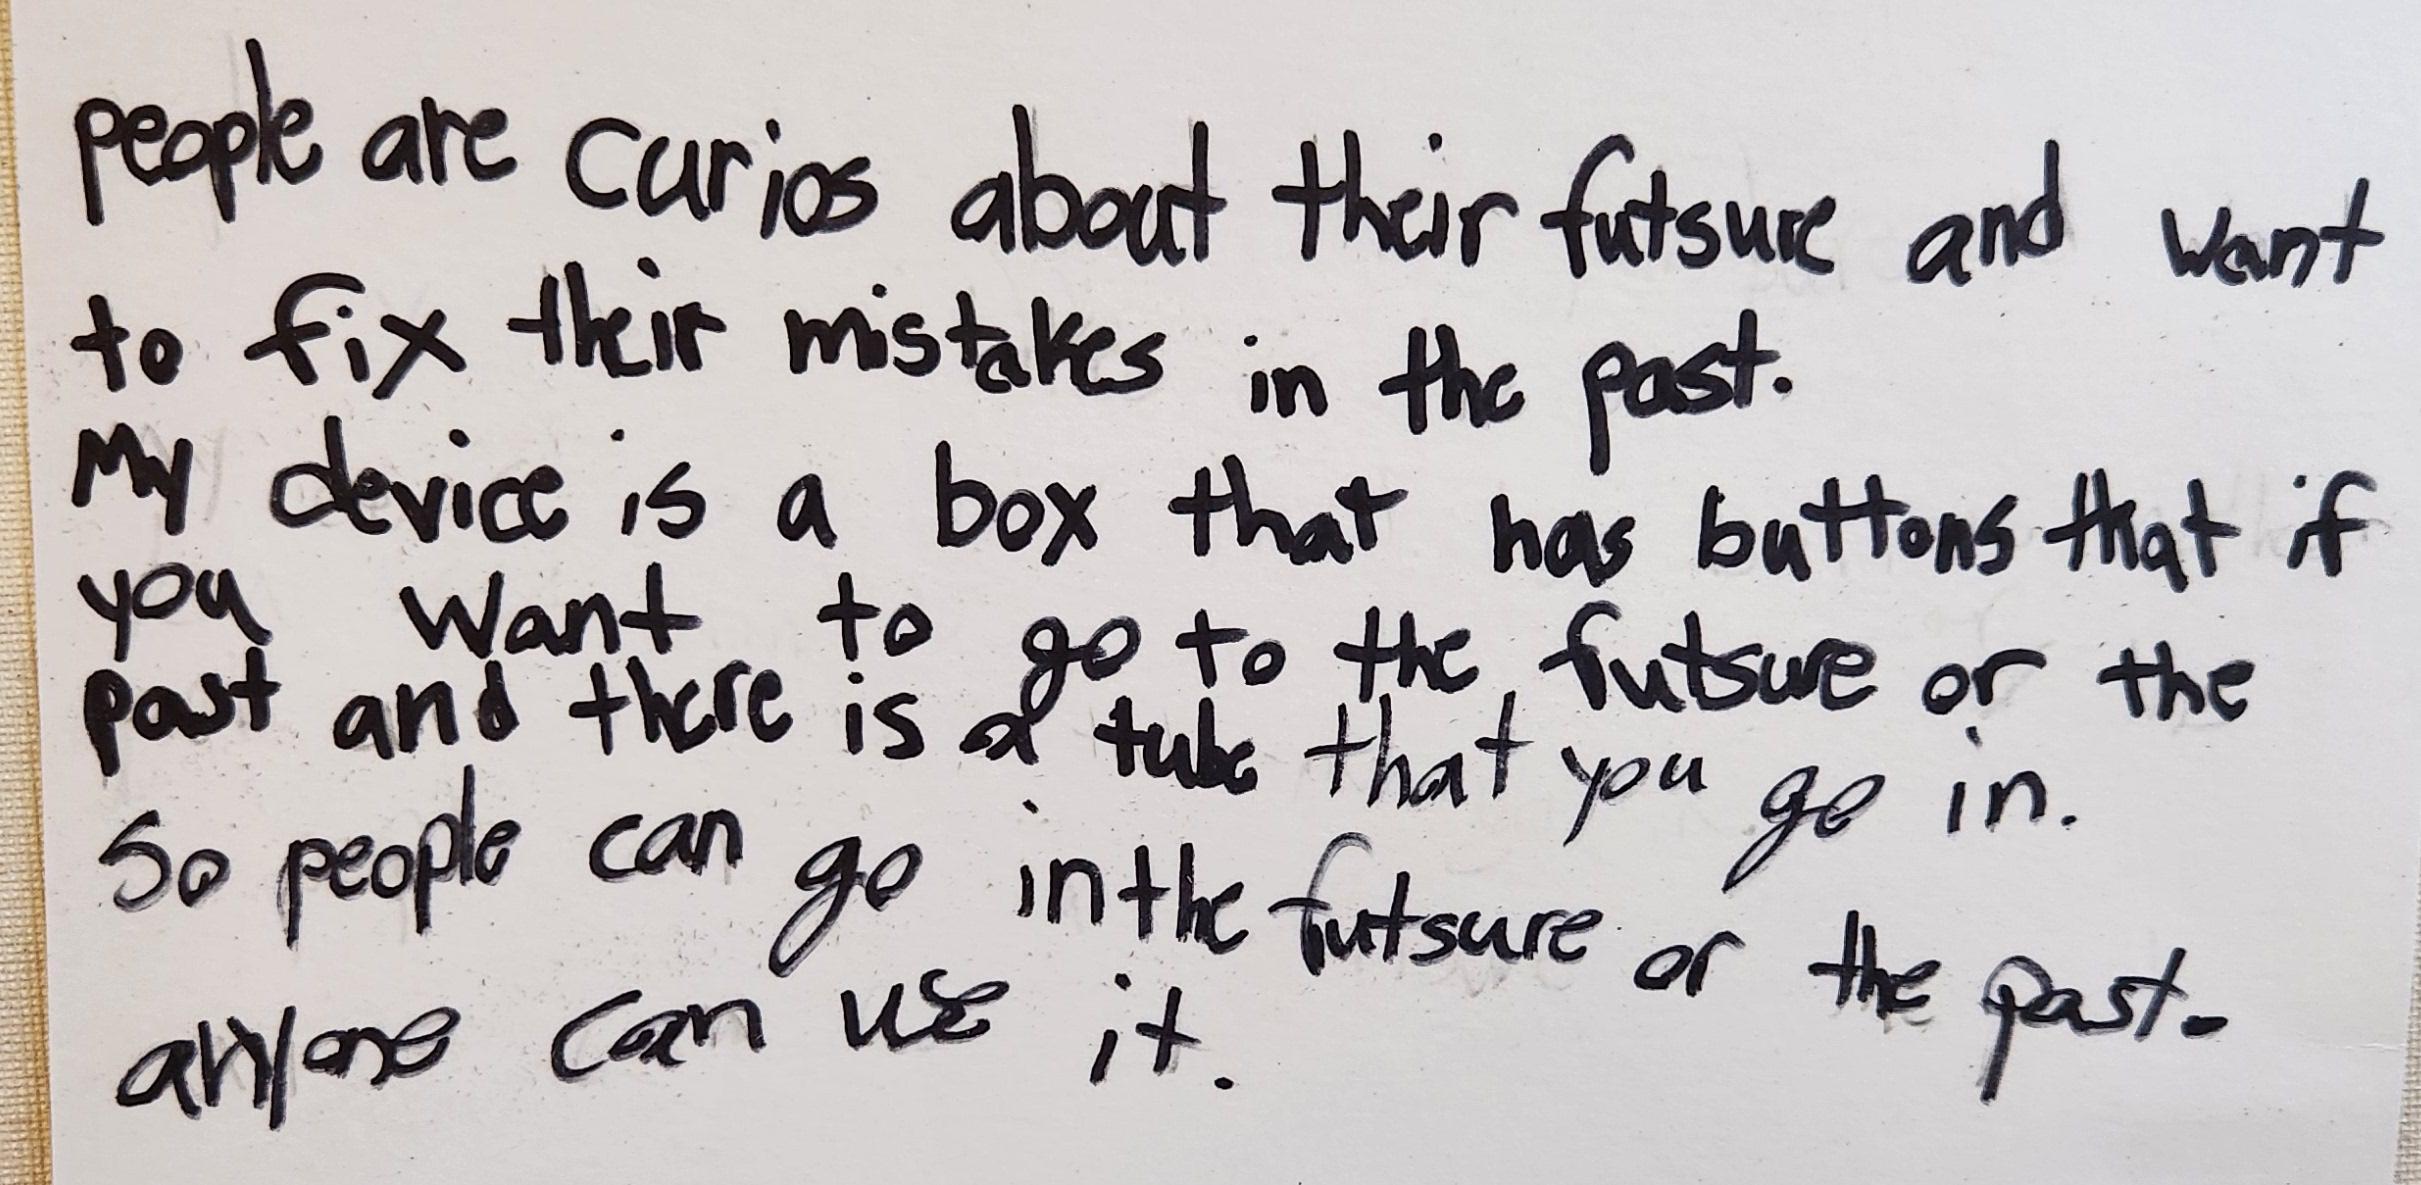 people are curios about their futsure and want
to fix their mistakes in the past.
My device is a box that has buttons that if
you want to go to the futsure or the
past and there is a tube that you go in.
So people can go in the futsure or the past.
anyone can use it.